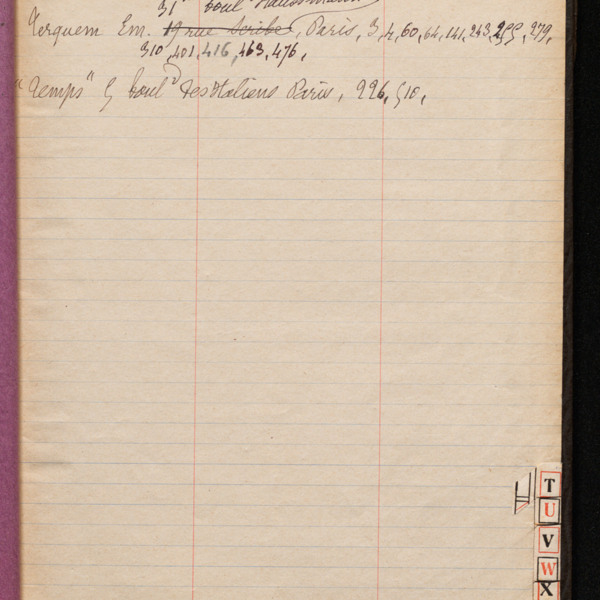 31 boul^d Haussmann
Terquem Em. 19 rue Scribe, Paris, 3, 4, 60, 64, 141, 243, 255, 279,
310, 401, 416, 463, 476,
"Temps" 5 boul^d des Italiens Paris, 226, 510,
T
U
V
W
X